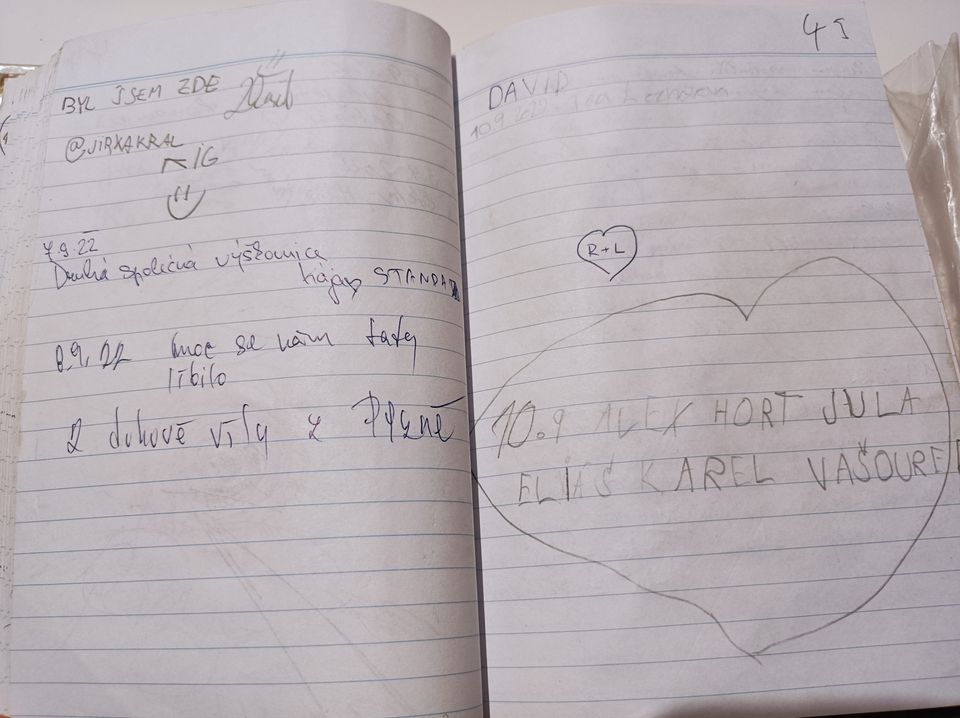 BYL JSEM ZDE
@JIRXAKRAL
IG
7.9.22
Druhá společná výšlovnice
hája STANDA
8.9.22 moc se nám tady
líbilo
2 duhové víly z Plzně
41
DAVID
10.9.2022
R+L
10.9 ALEX HORT JULA
ELIÁŠ KAREL VAŠOUREK